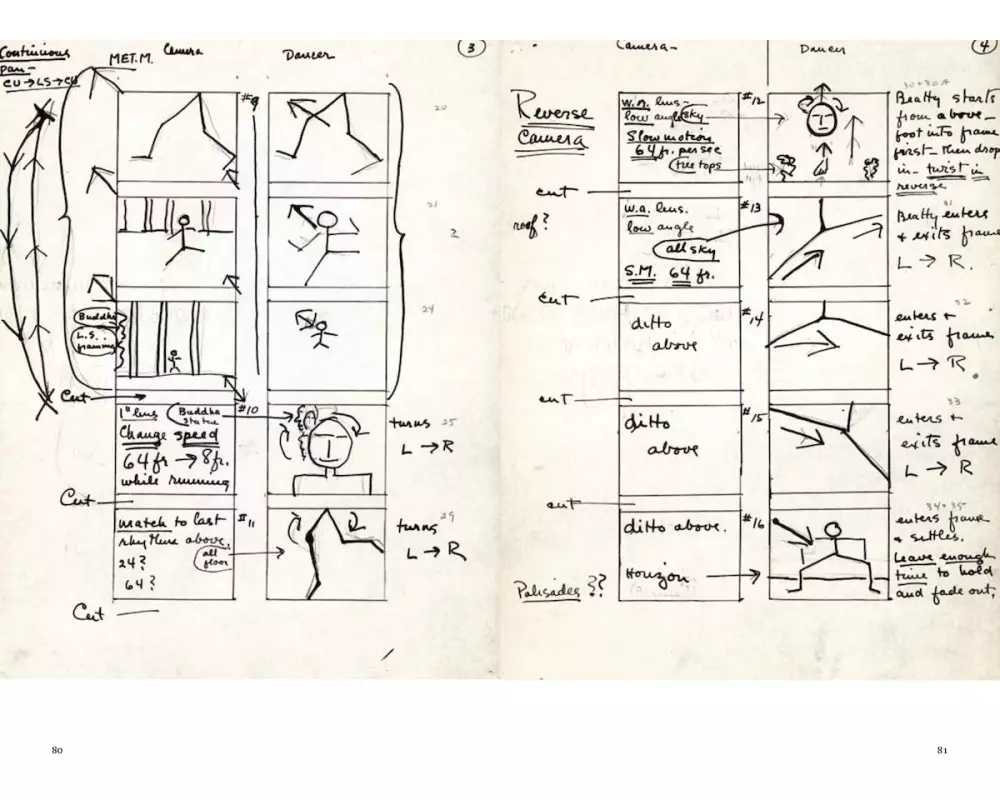 Continuous
pan —
CU → LS → CU
MET.M.
Camera
Dancer
3
#9
20
21
2
24
Buddha
L.S.
framing
Cut
1" lens
Buddha
statue
Change speed
64 fr → 8 fr.
while running
#10
turns
L → R
25
Cut
match to last
rhythm above.
24?
64?
all
floor
#11
turns
L → R
29
Cut
Camera —
Dancer
4
Reverse
Camera
W.A. lens —
low angle
sky
Slow motion
64 fr. per sec
tree tops
#12
30+30A
Beatty starts
from above —
foot into frame
first — then drop
in — twist in
reverse
cut
roof?
W.A. lens.
low angle
all sky
S.M. 64 fr.
#13
31
Beatty enters
+ exits frame
L → R.
cut
ditto
above
#14
32
enters +
exits frame
L → R
cut
ditto
above
#15
33
enters +
exits frame
L → R
cut
ditto above.
Horizon
Palisades??
#16
34+35
enters frame
+ settles.
Leave enough
time to hold
and fade out.
80
81